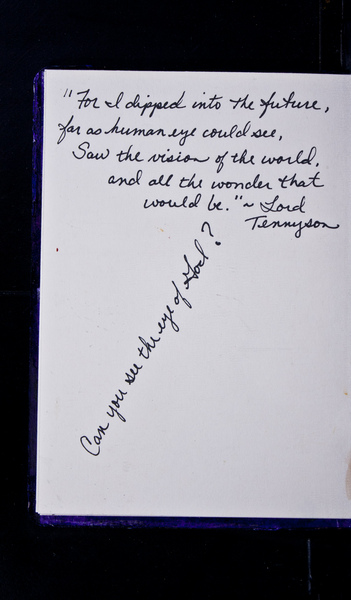 "For I dipped into the future,
far as human eye could see,
Saw the vision of the world,
and all the wonder that
would be." ~ Lord
Tennyson
Can you see the eye of God?